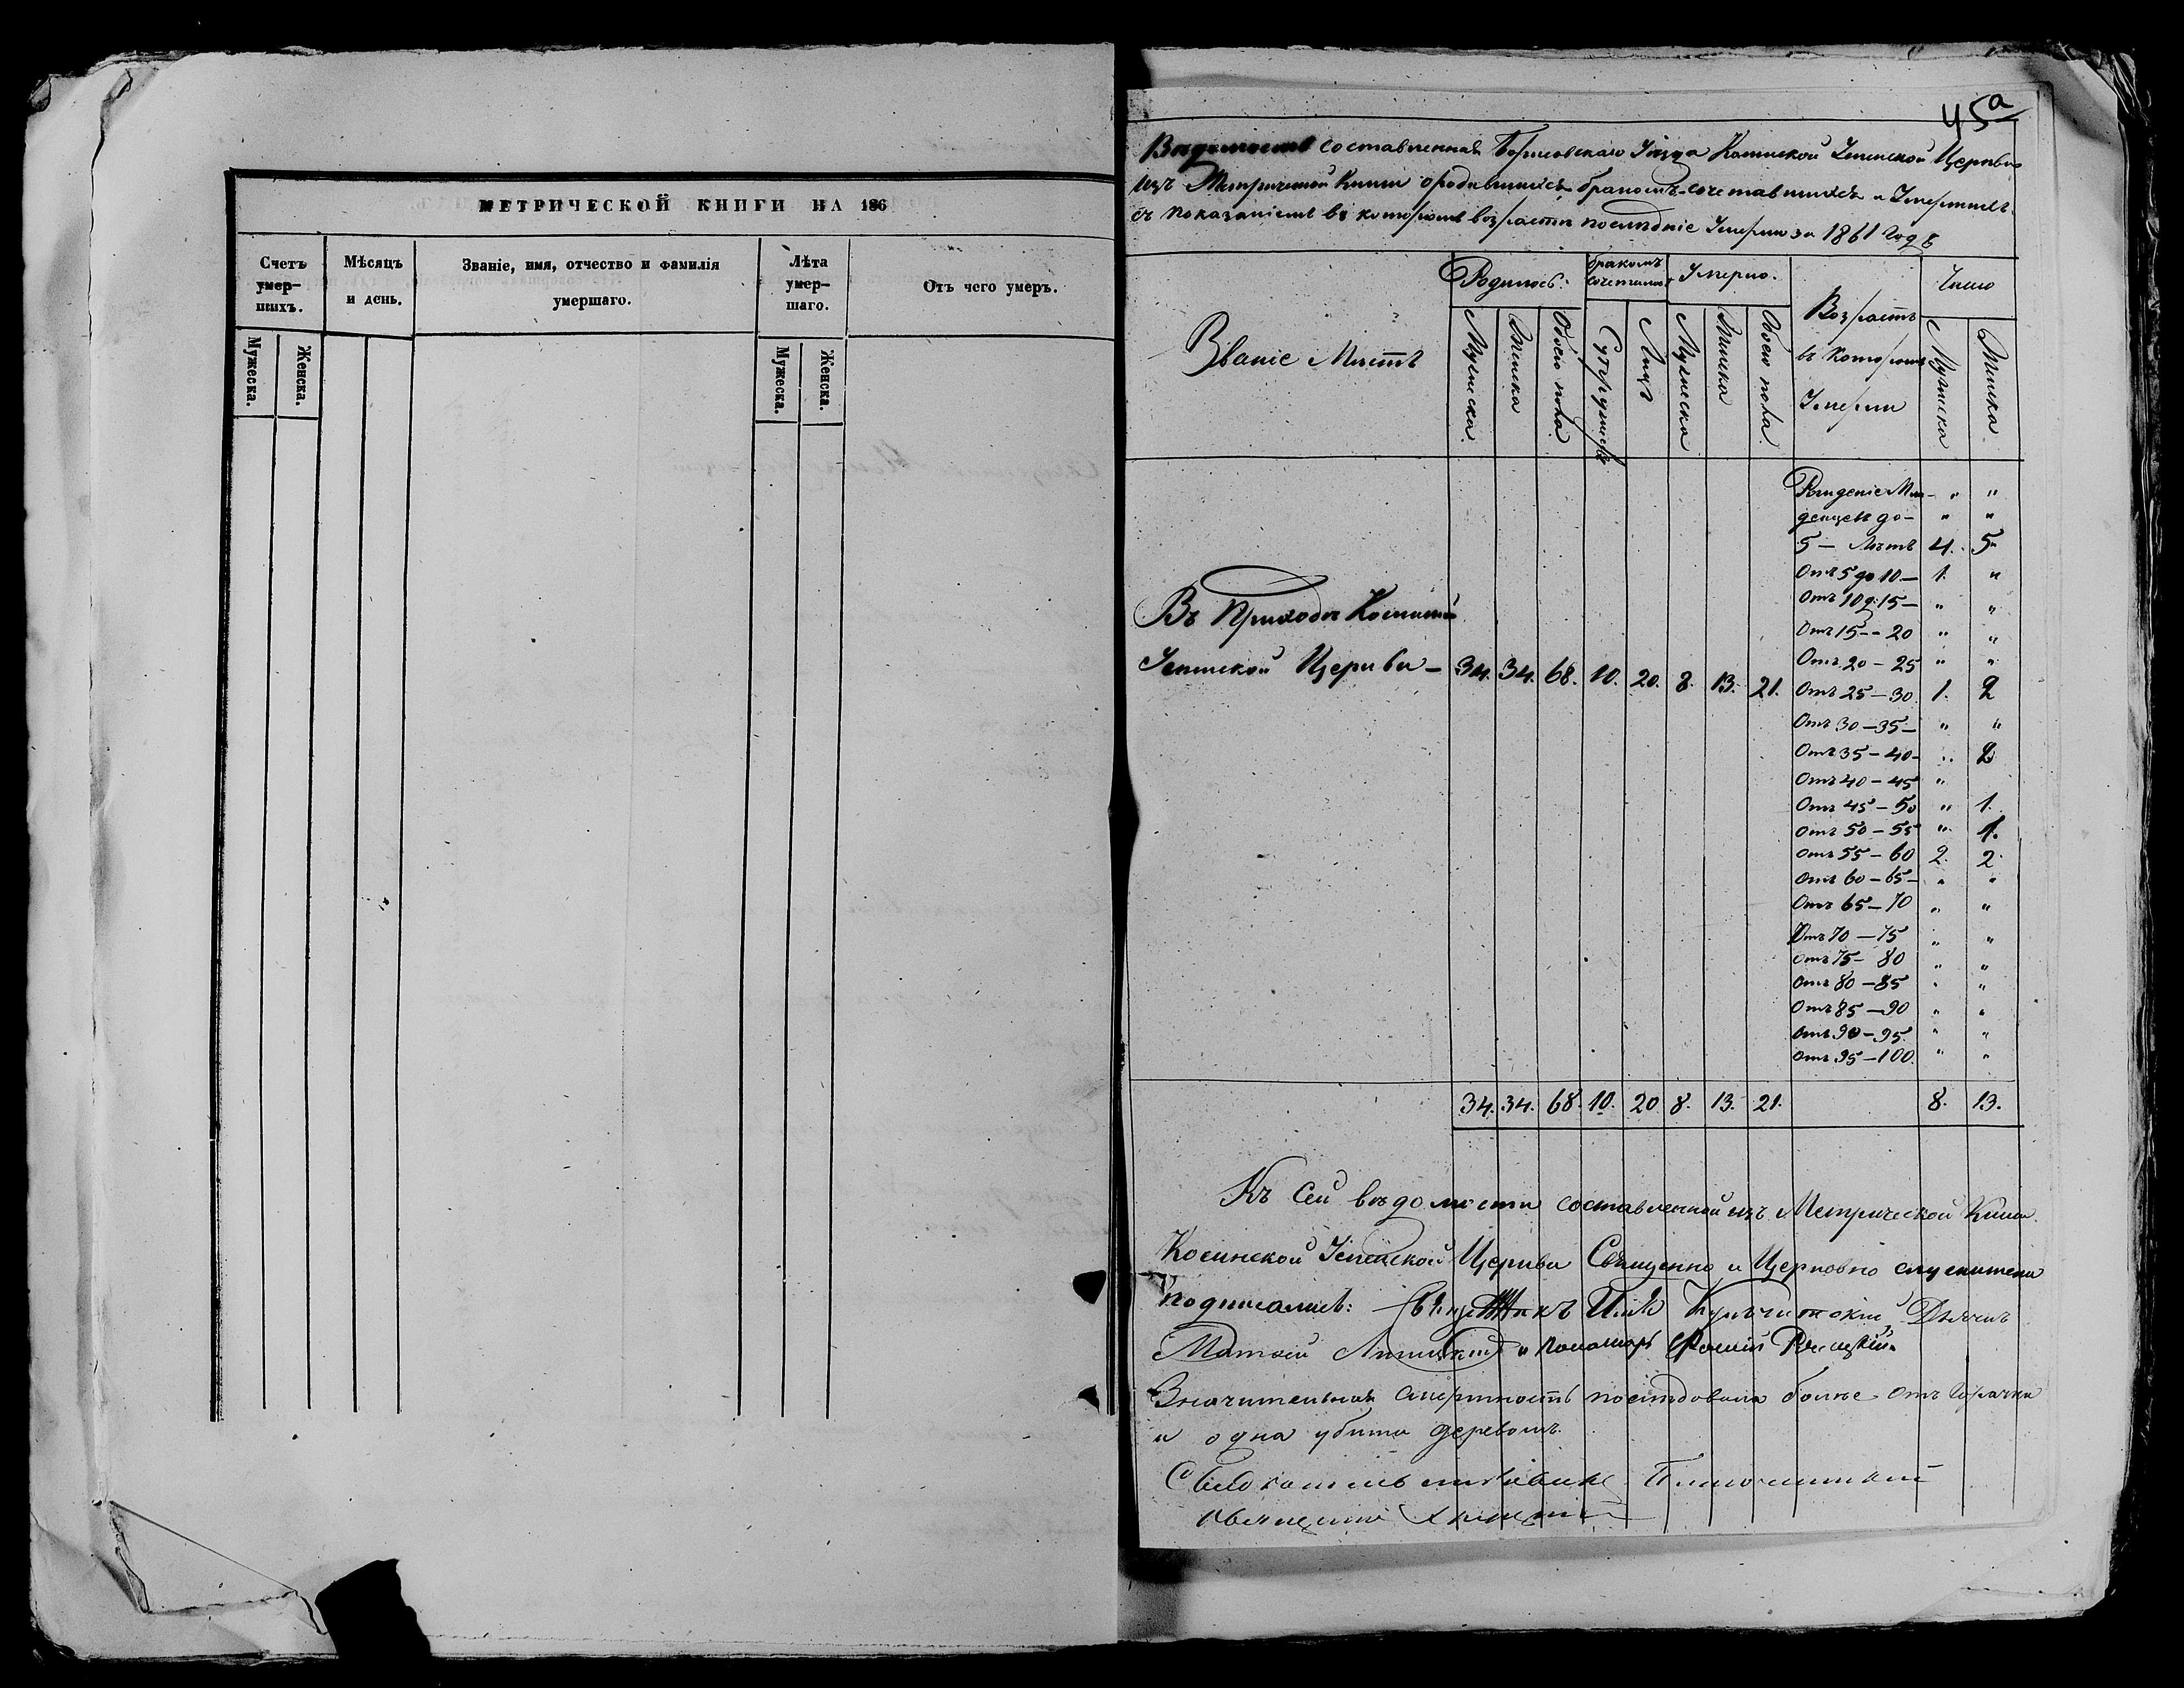 МЕТРИЧЕСКОЙ КНИГИ НА 186
Счетъ умер-шихъ.
Мѣсяцъ и день.
Званіе, имя, отчество и фамилія умершаго.
Лѣта умер-шаго.
Отъ чего умеръ.
Мужеска.
Женска.
Мужеска.
Женска.
45а
Вѣдомость составленная Борисовскаго Уѣзда Церкви
изъ Метрической Книги о родившихся бракомъ-сочетавшихся и Умершихъ
съ показаніемъ въ которомъ возрастѣ послѣдніе Умерли за 1861 Годъ
Званіе Мѣстъ
Родилось:
бракомъ сочеталось
Умерло.
Возрастъ въ которомъ Умерли
Число
Мужеска.
Женска
Обоего пола.
Супружествъ
Лицъ
Мужеска
Женска
Обоего пола.
Мужеска
Женска.
Рожденіе Мла- " "
денцевъ до- " "
5 — Лѣтъ 4. 5.
Отъ 5 до 10 — 1. "
Отъ 10 д. 15 — " "
Отъ 15 -- 20 " "
Отъ 20 - 25 " "
Въ Приходѣ
Церкви — 34. 34. 68. 10. 20. 8. 13. 21.
Отъ 25 — 30 1. 2
Отъ 30 — 35 — " "
Отъ 35 — 40 - " 2
Отъ 40 — 45 "
Отъ 45 — 50 " 1.
Отъ 50 — 55 " 1.
Отъ 55 — 60 2. 2.
Отъ 60 — 65 — " "
Отъ 65 — 70 " "
Отъ 70 — 75 " "
Отъ 75 — 80 " "
Отъ 80 — 85 " "
Отъ 85 — 90 " "
Отъ 90 — 95. " "
Отъ 95 — 100. " "
34. 34. 68. 10. 20 8. 13. 21. 8. 13.
Къ сей вѣдомости составленной изъ Метрической Книги
Косинской Церкви Священно и Церковно служители
подписались: Священникъ Дьячекъ
Матѳей и Пономарь
Значительная смертность послѣдовала болѣе отъ горячки
и одна убита деревомъ.